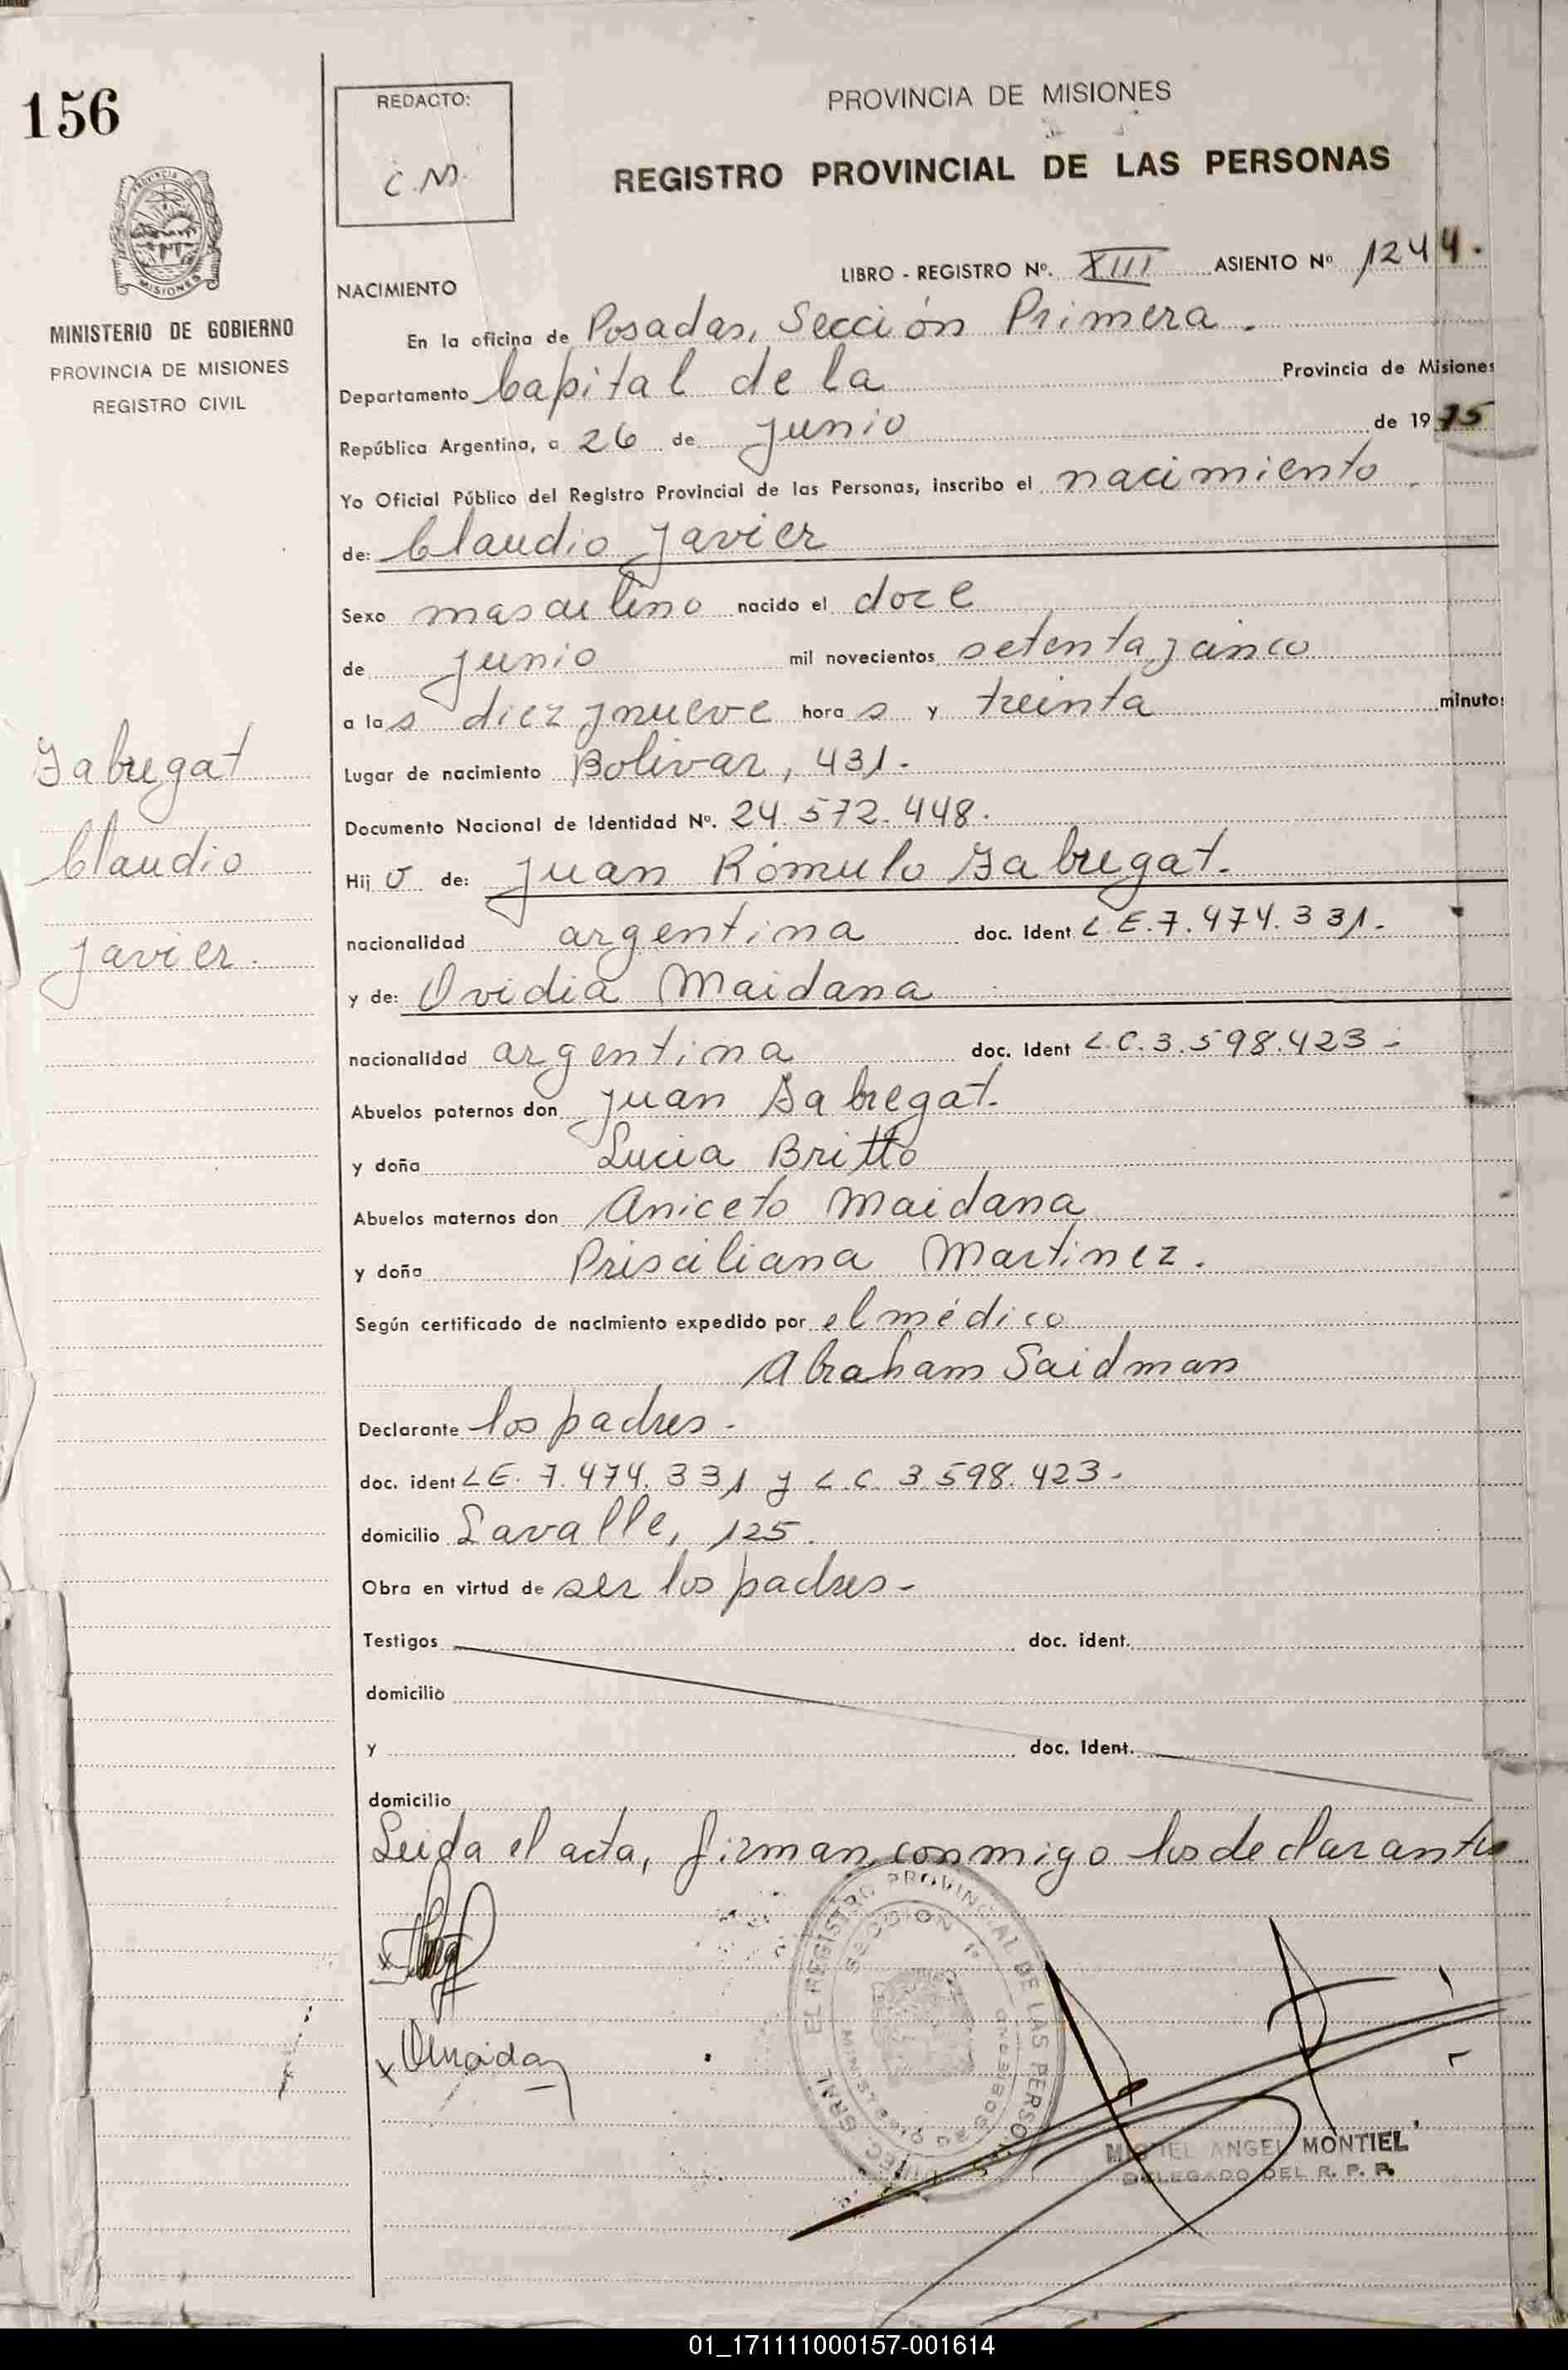 156
PROVINCIA DE
MISIONES
MINISTERIO DE GOBIERNO
PROVINCIA DE MISIONES
REGISTRO CIVIL
Fabregat
Claudio
Javier.
REDACTO:
C.M.
PROVINCIA DE MISIONES
REGISTRO PROVINCIAL DE LAS PERSONAS
LIBRO - REGISTRO Nº. XIII ASIENTO Nº 1244.
NACIMIENTO
En la oficina de Posadas, Sección Primera.
Departamento Capital de la Provincia de Misiones
República Argentina, a 26 de Junio de 1975
Yo Oficial Público del Registro Provincial de las Personas, inscribo el nacimiento.
de: Claudio Javier
Sexo masculino nacido el doce
de Junio mil novecientos setenta y cinco
a las diez y nueve horas y treinta minutos
Lugar de nacimiento Bolivar, 431.
Documento Nacional de Identidad Nº. 24.572.448.
Hijo de: Juan Rómulo Fabregat.
nacionalidad argentina doc. Ident L.E.7.474.331.
y de: Ovidia Maidana
nacionalidad argentina doc. Ident L.C.3.598.423-
Abuelos paternos don Juan Fabregat.
y doña Lucia Britto
Abuelos maternos don Aniceto Maidana
y doña Prisciliana Martinez.
Según certificado de nacimiento expedido por el médico
Abraham Saidman
Declarante los padres-
doc. ident L.E. 7.474.331 y L.C. 3.598.423-
domicilio Lavalle, 125.
Obra en virtud de ser los padres-
Testigos doc. ident.
domicilio
y doc. Ident.
domicilio
Leida el acta, firman conmigo los declarantes
EL REGISTRO PROVINCIAL DE LAS PERSONAS
SECCION 1ª
MINISTERIO DE GOBIERNO
MIGUEL ANGEL MONTIEL
DELEGADO DEL R. P. P.
01_171111000157-001614